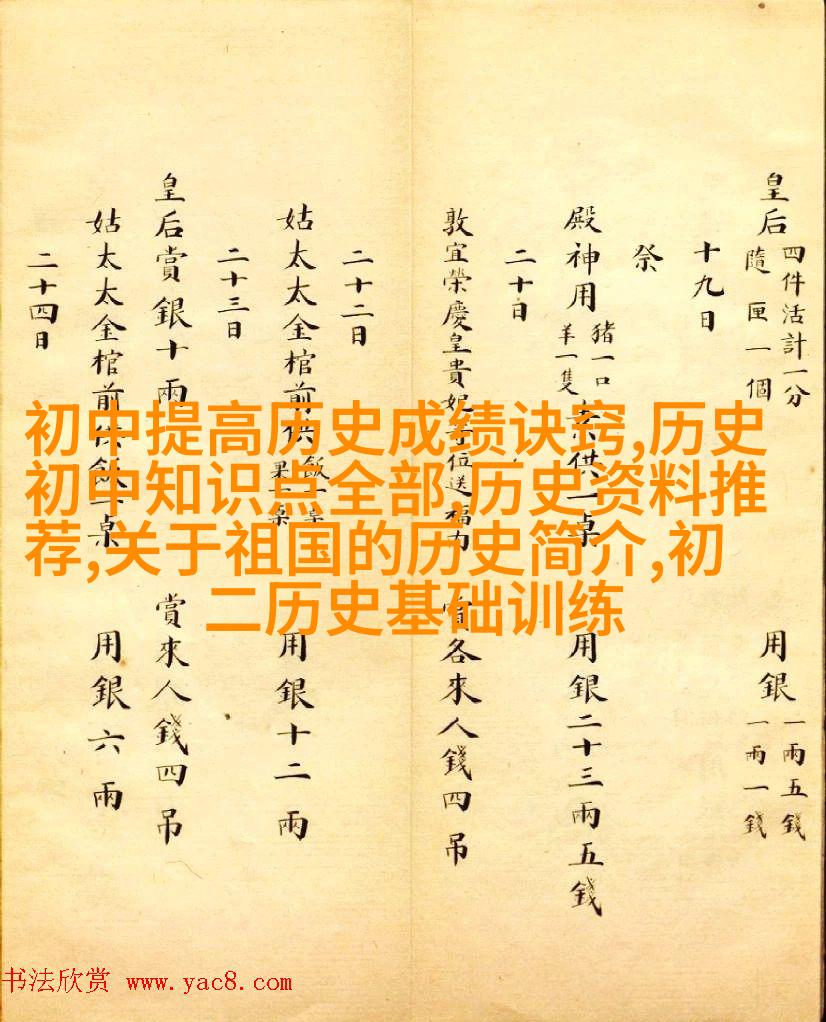 皇后 四件活計一分 隨匣一個 用銀 一兩五錢 一兩一錢
十九日
祭
殿神用 猪一口 羊一隻 素供一桌 用銀二十三兩五錢
二十日
敦宜榮慶皇貴妃 位送福力 賞各來人錢四吊
二十二日
姑太太金棺前供 飯一桌 果一桌 用銀十二兩
二十三日
皇后賞銀十兩 賞來人錢四吊
姑太太金棺前供飯一桌 用銀六兩
二十四日
初中提高历史成绩诀窍,历史
初中知识点全部,历史资料推
荐,关于祖国的历史简介,初
二历史基础训练
书法欣赏 www.yac8.com